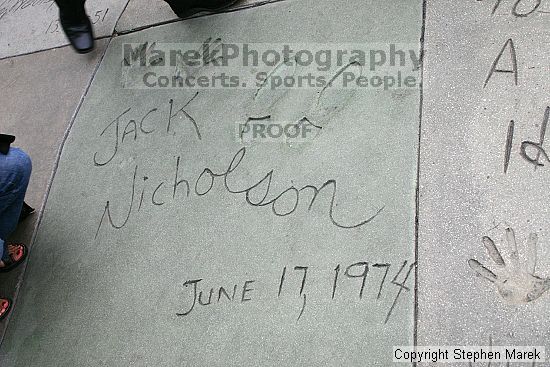 51
MarekPhotography
Concerts. Sports. People.
PROOF
JACK
Nicholson
JUNE 17, 1974
Copyright Stephen Marek